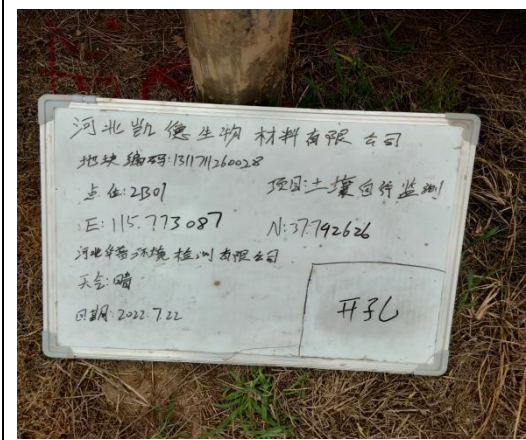 河北凯德生物材料有限公司
地块编码:1311711260028
点位:2B01 项目:土壤自行监测
E:115.773087 N:37.792626
河北华普环境检测有限公司
天气:晴
日期:2022.7.22
开孔